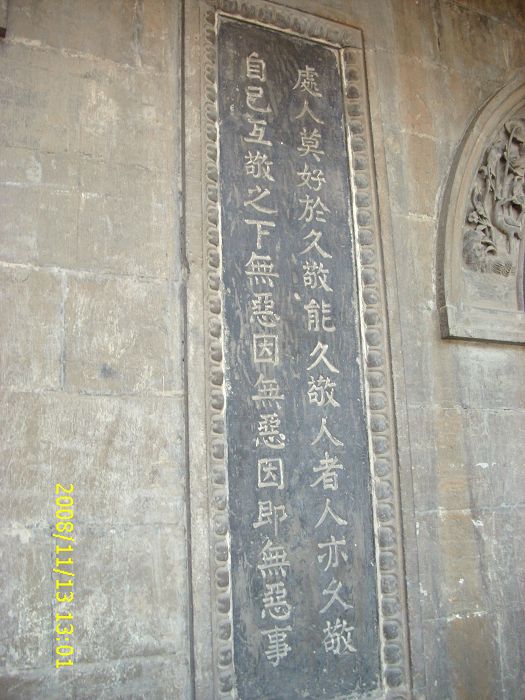 處人莫好於久敬能久敬人者人亦久敬
自己互敬之下無惡因無惡因即無惡事
2008/11/13 13:01